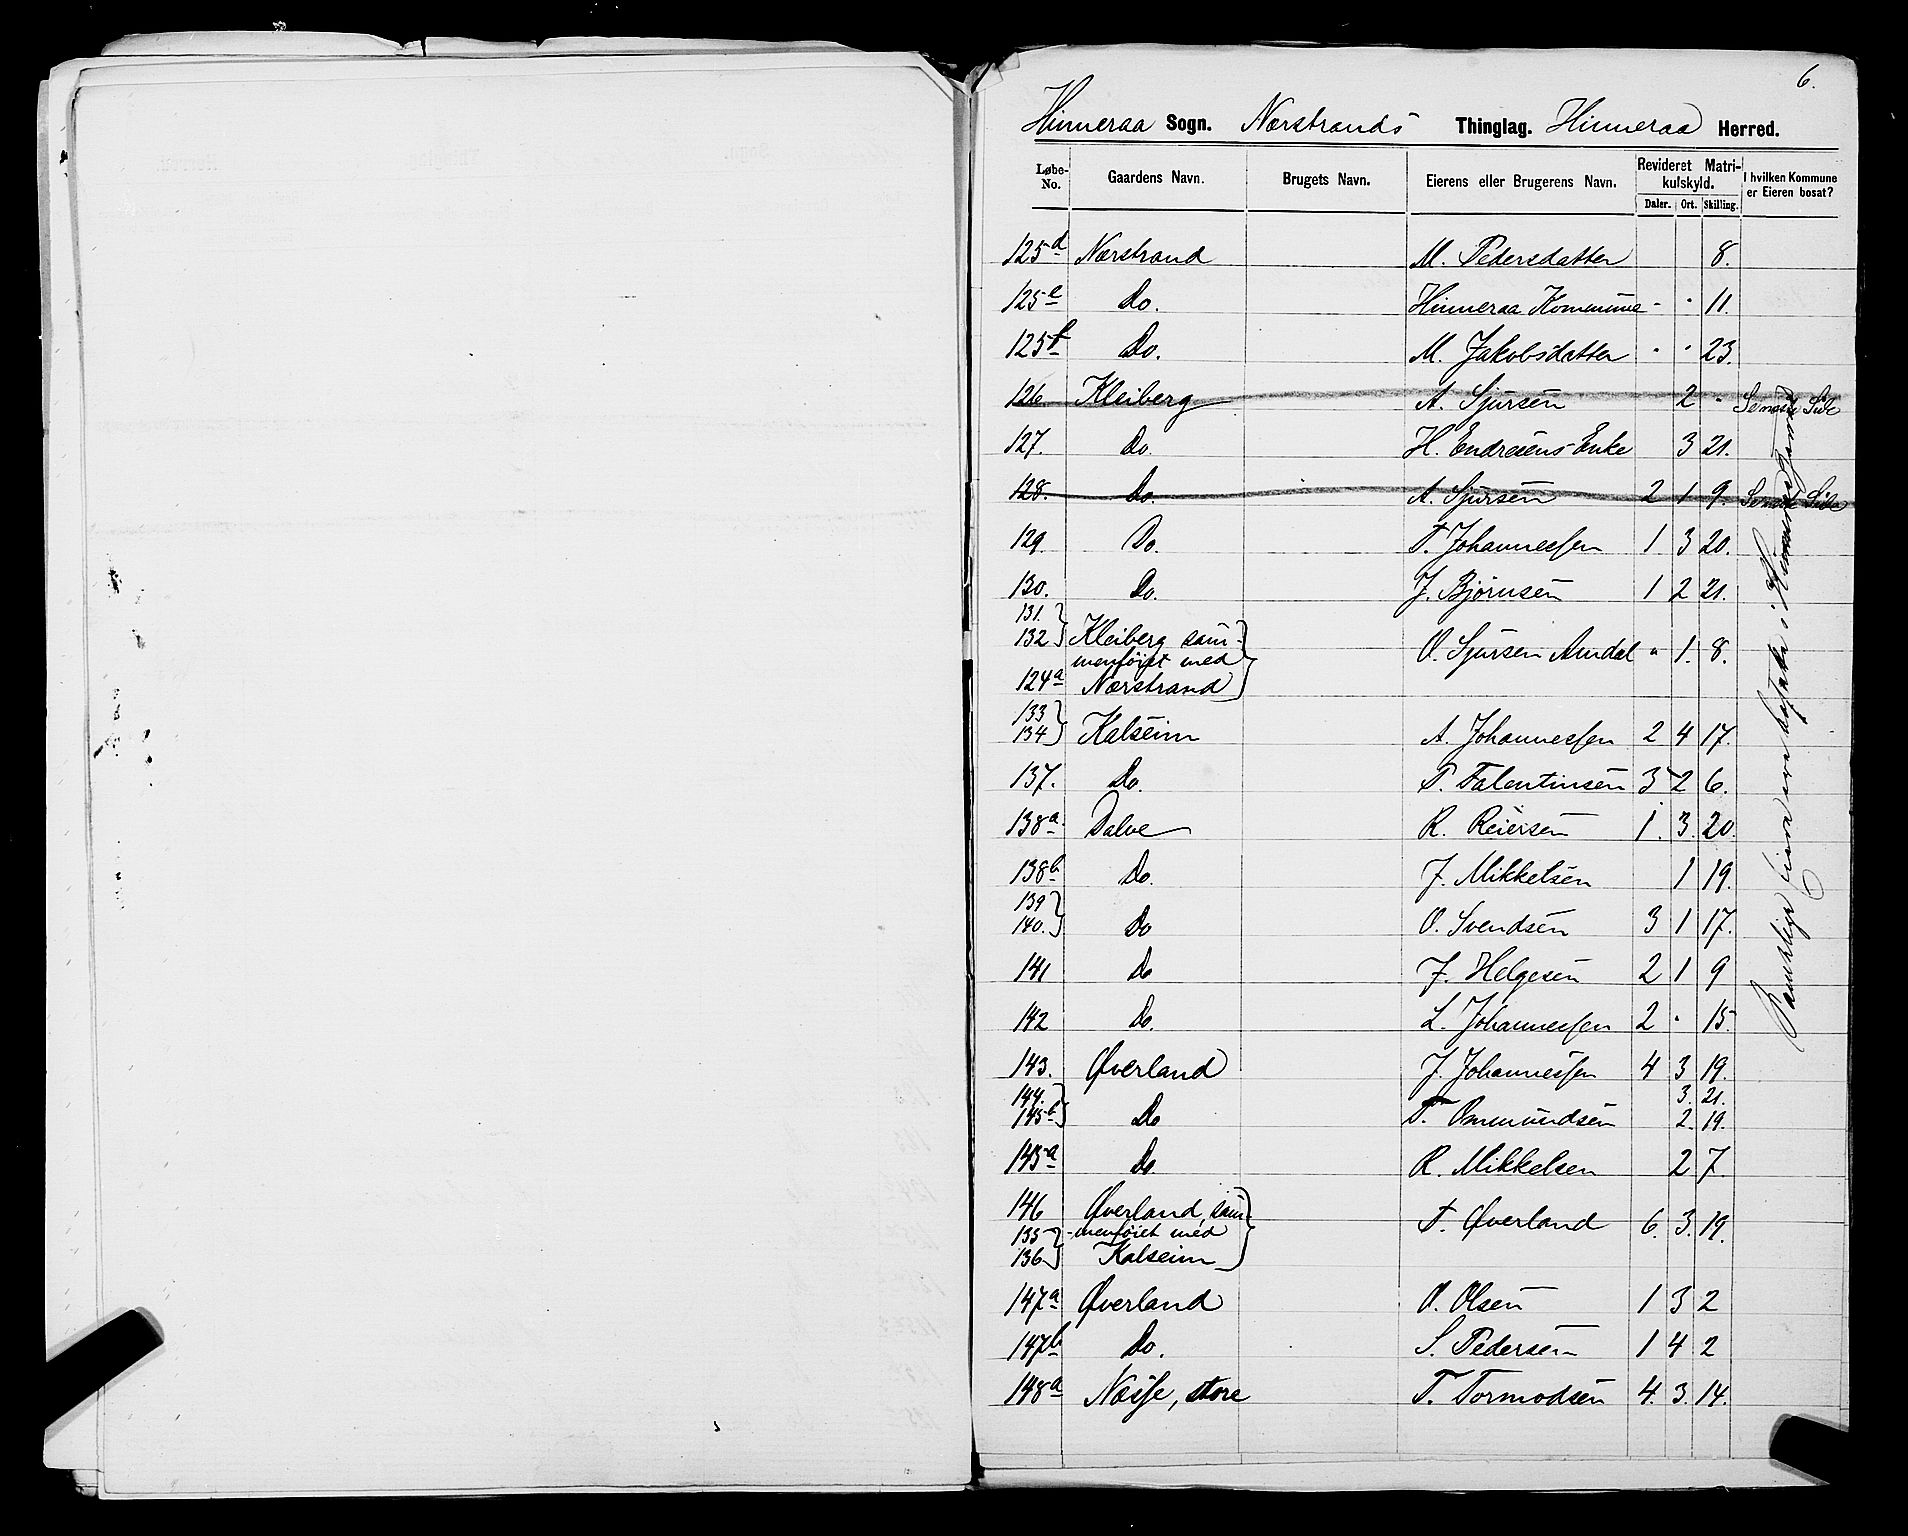 6.
Hinneraa Sogn. Nærstrands Thinglag. Hinneraa Herred.
Løbe-No. Gaardens Navn. Brugets Navn. Eierens eller Brugerens Navn. Revideret Matrikulskyld. I hvilken Kommune er Eieren bosat?
Daler. Ort. Skilling.
125d Nærstrand M. Pedersdatter 8.
125e Do. Hinneraa Kommune - " 11.
125f Do. M. Jakobsdatter " " 23.
126 Kleiberg A. Sjursen 2 " Seneste Side
127. Do. H. Endresens Enke 3 21.
128. Do. A. Sjursen 2 1 9. Seneste Side
129. Do. T. Johannessen 1 3 20.
130. Do. J. Bjørnsen 1 2 21.
131.
132 } Kleiberg sam-
menføiet med O. Sjursen Amdal " 1. 8.
124a Nærstrand }
133
134 } Kalseim A. Johannessen 2 4 17.
137. Do. P. Falentinsen 3 2 6.
138a. Dalve R. Reiersen 1. 3. 20.
138b Do. J. Mikkelsen 1 19.
139
140. } Do O. Svendsen 3 1 17.
141 Do J. Helgesen 2 1 9
142 Do. L. Johannessen 2 " 15
143. Øverland J. Johannessen 4 3 19.
144. 3. 21.
145b } Do T. Ommundsen 2. 19.
145a Do. R. Mikkelsen 2 7.
146 Øverland sam-
135 -menføiet med T. Øverland 6. 3. 19.
136 } Kalseim }
147a Øverland O. Olsen 1 3 2
147b Do. S. Pedersen 1 4 2
148a Næsse, store T. Tormodsen 4. 3. 14.
Samtlige Eiere ere bosatte i Hinneraa